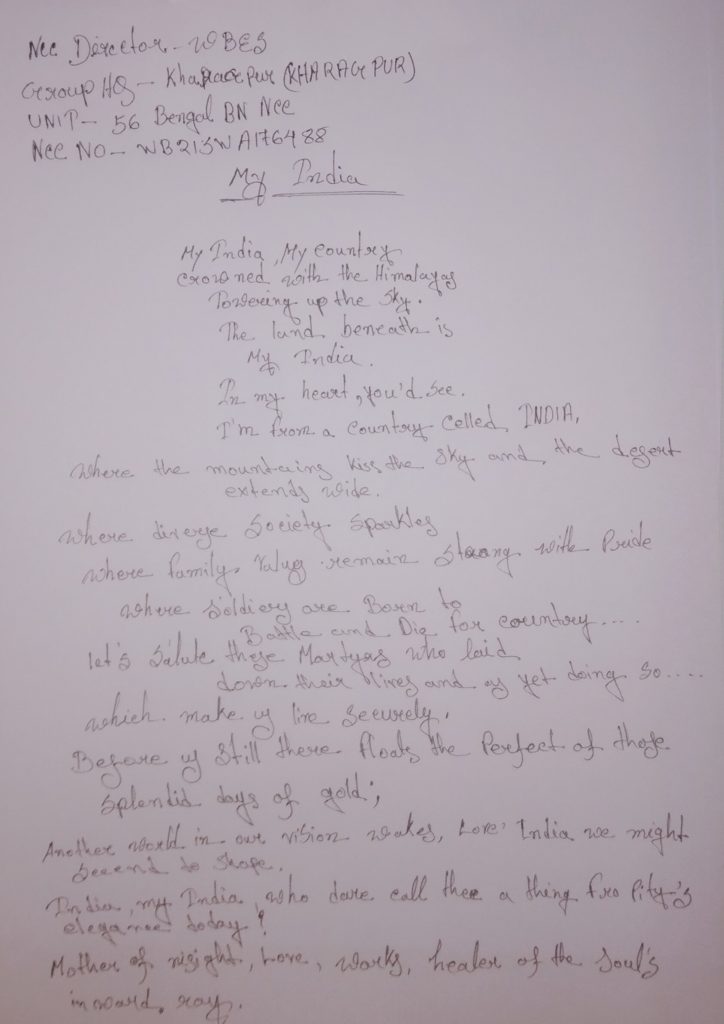 Ncc Director - WBES
Group HQ - Kharagpur (KHARAGPUR)
UNIT - 56 Bengal BN Ncc
Ncc NO - WB21SWA176488
My India
My India, My country
crowned with the Himalayas
Towering up the sky.
The land beneath is
My India.
In my heart, you'd see.
I'm from a country celled INDIA,
where the mountains kiss the sky and the desert
extends wide.
where diverse society sparkles
where family values remain strong with Pride
where soldiers are Born to
Battle and Die for country....
let's salute these Martyrs who laid
down their lives and as yet doing so....
which make us live securely.
Before us still there floats the Perfect of those
splendid days of gold;
Another world in our vision wakes, Love' India we might
to shape.
India, my India, who dare call thee a thing fro Pity's
elegance today!
Mother of Love, works, healer of the soul's
inward ray.